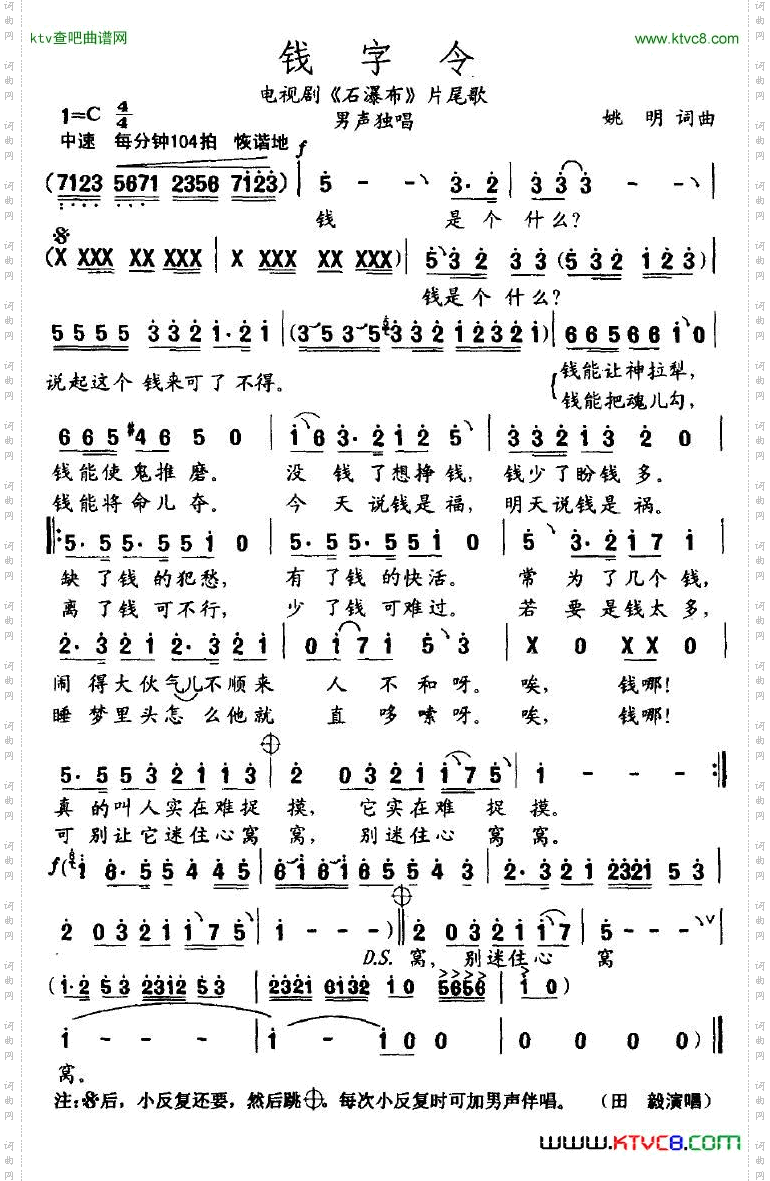 ktv查吧曲谱网 www.ktvc8.com
钱 字 令
电视剧《石瀑布》片尾歌
1=C 4/4 男声独唱 姚 明 词曲
中速 每分钟104拍 恢谐地 f
(7123 5671 2356 7123) | 5 - - 3·2 | 3 3 3 - - |
钱 是 个 什 么?
(X XXX XX XXX | X XXX XX XXX) | 5 3 2 3 3 (5 3 2 1 2 3) |
钱是个 什 么?
5 5 5 5 3 3 2 1·2 1 | (3 5 3 5 3 3 2 1 2 3 2 1) | 6 6 5 6 6 1 0
说起这个 钱来可了 不得。 钱能让神拉犁,
钱能把魂儿勾,
6 6 5 #4 6 5 0 | 1 6 3·2 1 2 5 | 3 3 2 1 3 5 0
钱能使鬼推 磨。 没 钱 了想挣钱, 钱少了盼钱 多。
钱能将命儿 夺。 今 天 说钱是福, 明天说钱是 祸。
5· 5 5· 5 5 5 1 0 | 5· 5 5· 5 5 5 1 0 | 5 3·2 1 7 1
缺 了钱 的犯愁, 有 了钱 的快活。 常 为 了几个 钱,
离 了钱 可不行, 少 了钱 可难过。 若 要 是钱太 多,
2· 3 2 1 2· 3 2 1 | 0 1 7 1 5 3 | X 0 X X 0
闹 得大伙气儿不顺来 人 不 和呀。 唉, 钱哪!
睡 梦里头怎 么他就 直 哆 嗦呀。 唉, 钱哪!
5· 5 5 3 2 1 1 3 | 2 0 3 2 1 1 7 5 | 1 - - - :‖
真 的叫人实在难捉 摸, 它实在难 捉 摸。
可 别让它迷住心窝 窝, 别迷住心 窝 窝。
f (1 6·5 5 4 4 5 | 6 1 6 1 6 5 5 4 5 | 3·2 2 1 2321 5 3 |
2 0 3 2 1 1 7 5 | 1 - - -) ‖ 2 0 3 2 1 1 7 | 5 - - - V
D.S. 窝, 别迷住心 窝
(1·2 5 3 2312 5 3 | 2321 6132 5656 1 0)
1 - - - | 1 - 1 0 0 | 0 0 0 0 ‖
窝。
注:𝄋后,小反复还要,然后跳𝄌。每次小反复时可加男声伴唱。 (田 毅演唱)
www.KTVC8.com
词曲网